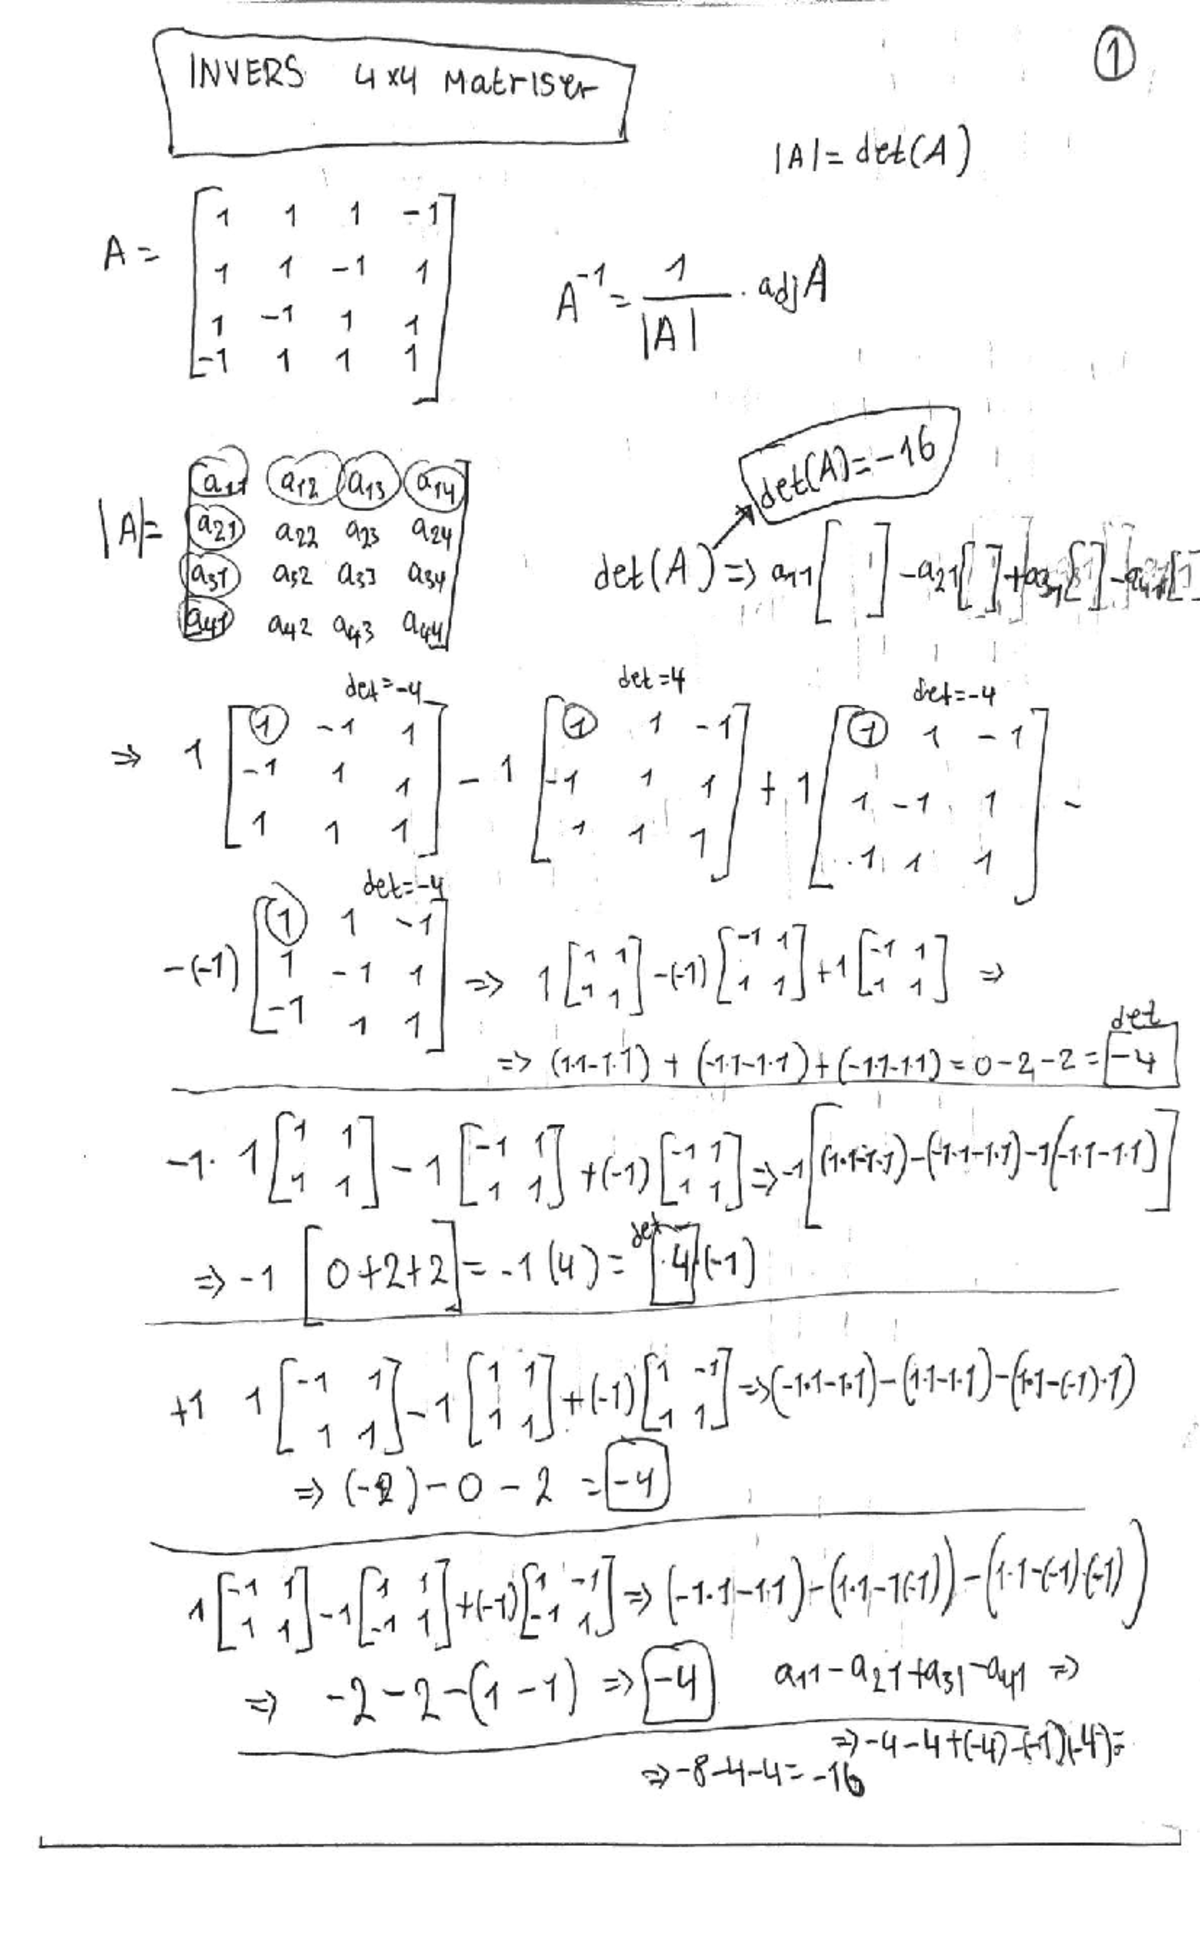 ①
INVERS 4x4 Matriser
|A| = det(A)
A = [1 1 1 -1
1 1 -1 1
1 -1 1 1
-1 1 1 1]
A⁻¹ = 1/|A| · adjA
det(A) = -16
|A| = [a11 a12 a13 a14
a21 a22 a23 a24
a31 a32 a33 a34
a41 a42 a43 a44]
det(A) => a11[ ] - a21[ ] + a31[ ] - a41[ ]
det=-4 det=4 det=-4
=> 1 [1 -1 1; -1 1 1; 1 1 1] - 1 [1 1 -1; -1 1 1; 1 1 1] + 1 [1 1 -1; 1 -1 1; 1 1 1] -
det=-4
-(-1) [1 1 -1; 1 -1 1; -1 1 1] => 1 [1 1; 1 1] -(-1) [-1 1; 1 1] + 1 [-1 1; 1 1] =>
det
=> (1·1-1·1) + (-1·1-1·1) + (-1·1-1·1) = 0-2-2 = -4
-1· 1 [1 1; 1 1] - 1 [-1 1; 1 1] + (-1) [-1 1; 1 1] => -1 [(1·1-1·1) - (-1·1-1·1) - 1(-1·1-1·1)]
det
=> -1 [0+2+2] = -1 (4) = 4 (-1)
+1 1 [-1 1; 1 1] - 1 [1 1; 1 1] + (-1) [1 -1; 1 1] => (-1·1-1·1) - (1·1-1·1) - (1·1-(-1)·1)
=> (-2) - 0 - 2 = -4
1 [-1 1; 1 1] - 1 [1 1; -1 1] + (-1) [1 -1; -1 1] => (-1·1-1·1) - (1·1-1(-1)) - (1·1-(-1)·(-1))
=> -2-2-(1-1) => -4 a11 - a21 + a31 - a41 =>
=> -4-4+(-4)-(-1)(-4) =
=> -8-4-4 = -16